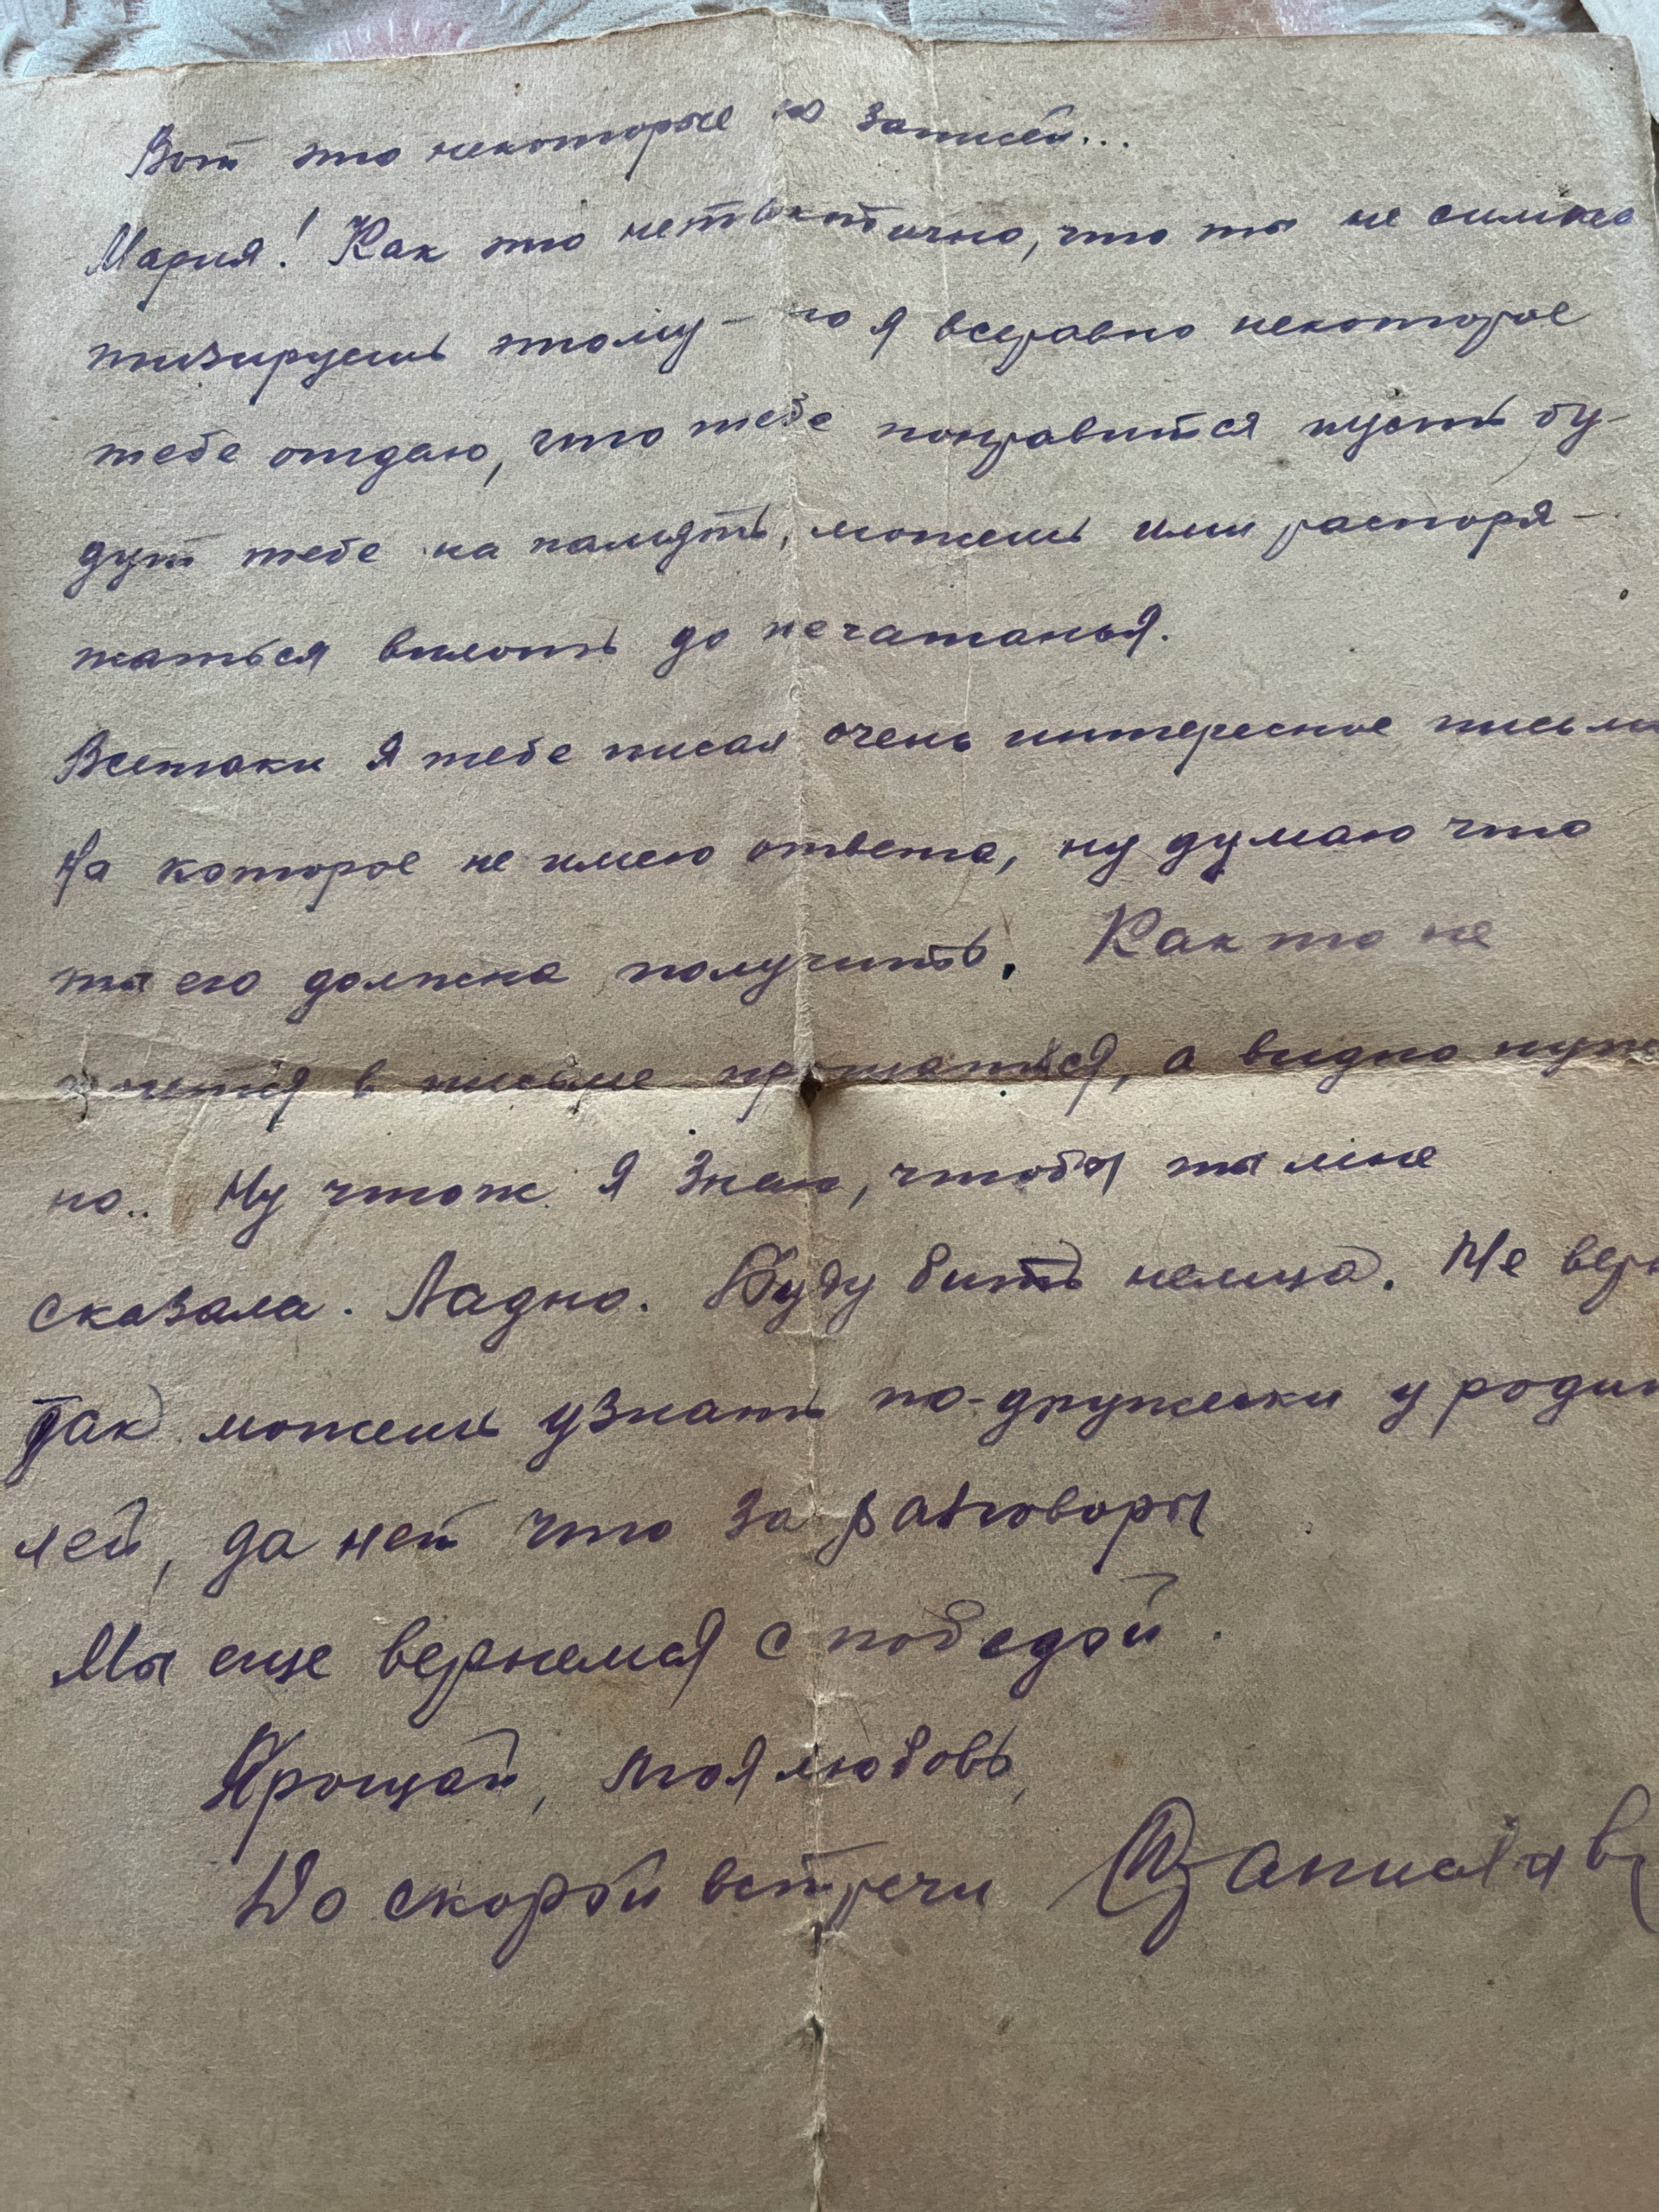 Вот это некоторые из записей...
Мария! Как это нетактично, что ты не симпа
тизируешь этому - но я всеравно некоторое
тебе отдаю, что тебе понравится пусть бу-
дут тебе на память, можешь ими распоря-
жаться вплоть до печатанья.
Всетаки я тебе писал очень интересное письмо
На которое не имею ответа, ну думаю что
ты его должна получить. Как то не
хочется в письме прощаться, а видно нуж
но.. Ну чтож я знаю, чтобы ты мне
сказала. Ладно. Буду бить немца. Не вер
Так можешь узнать по-дружески у родит
лей, да ней что за разговоры
Мы еще вернемся с победой.
Прощай, моя любовь,
До скорой встречи